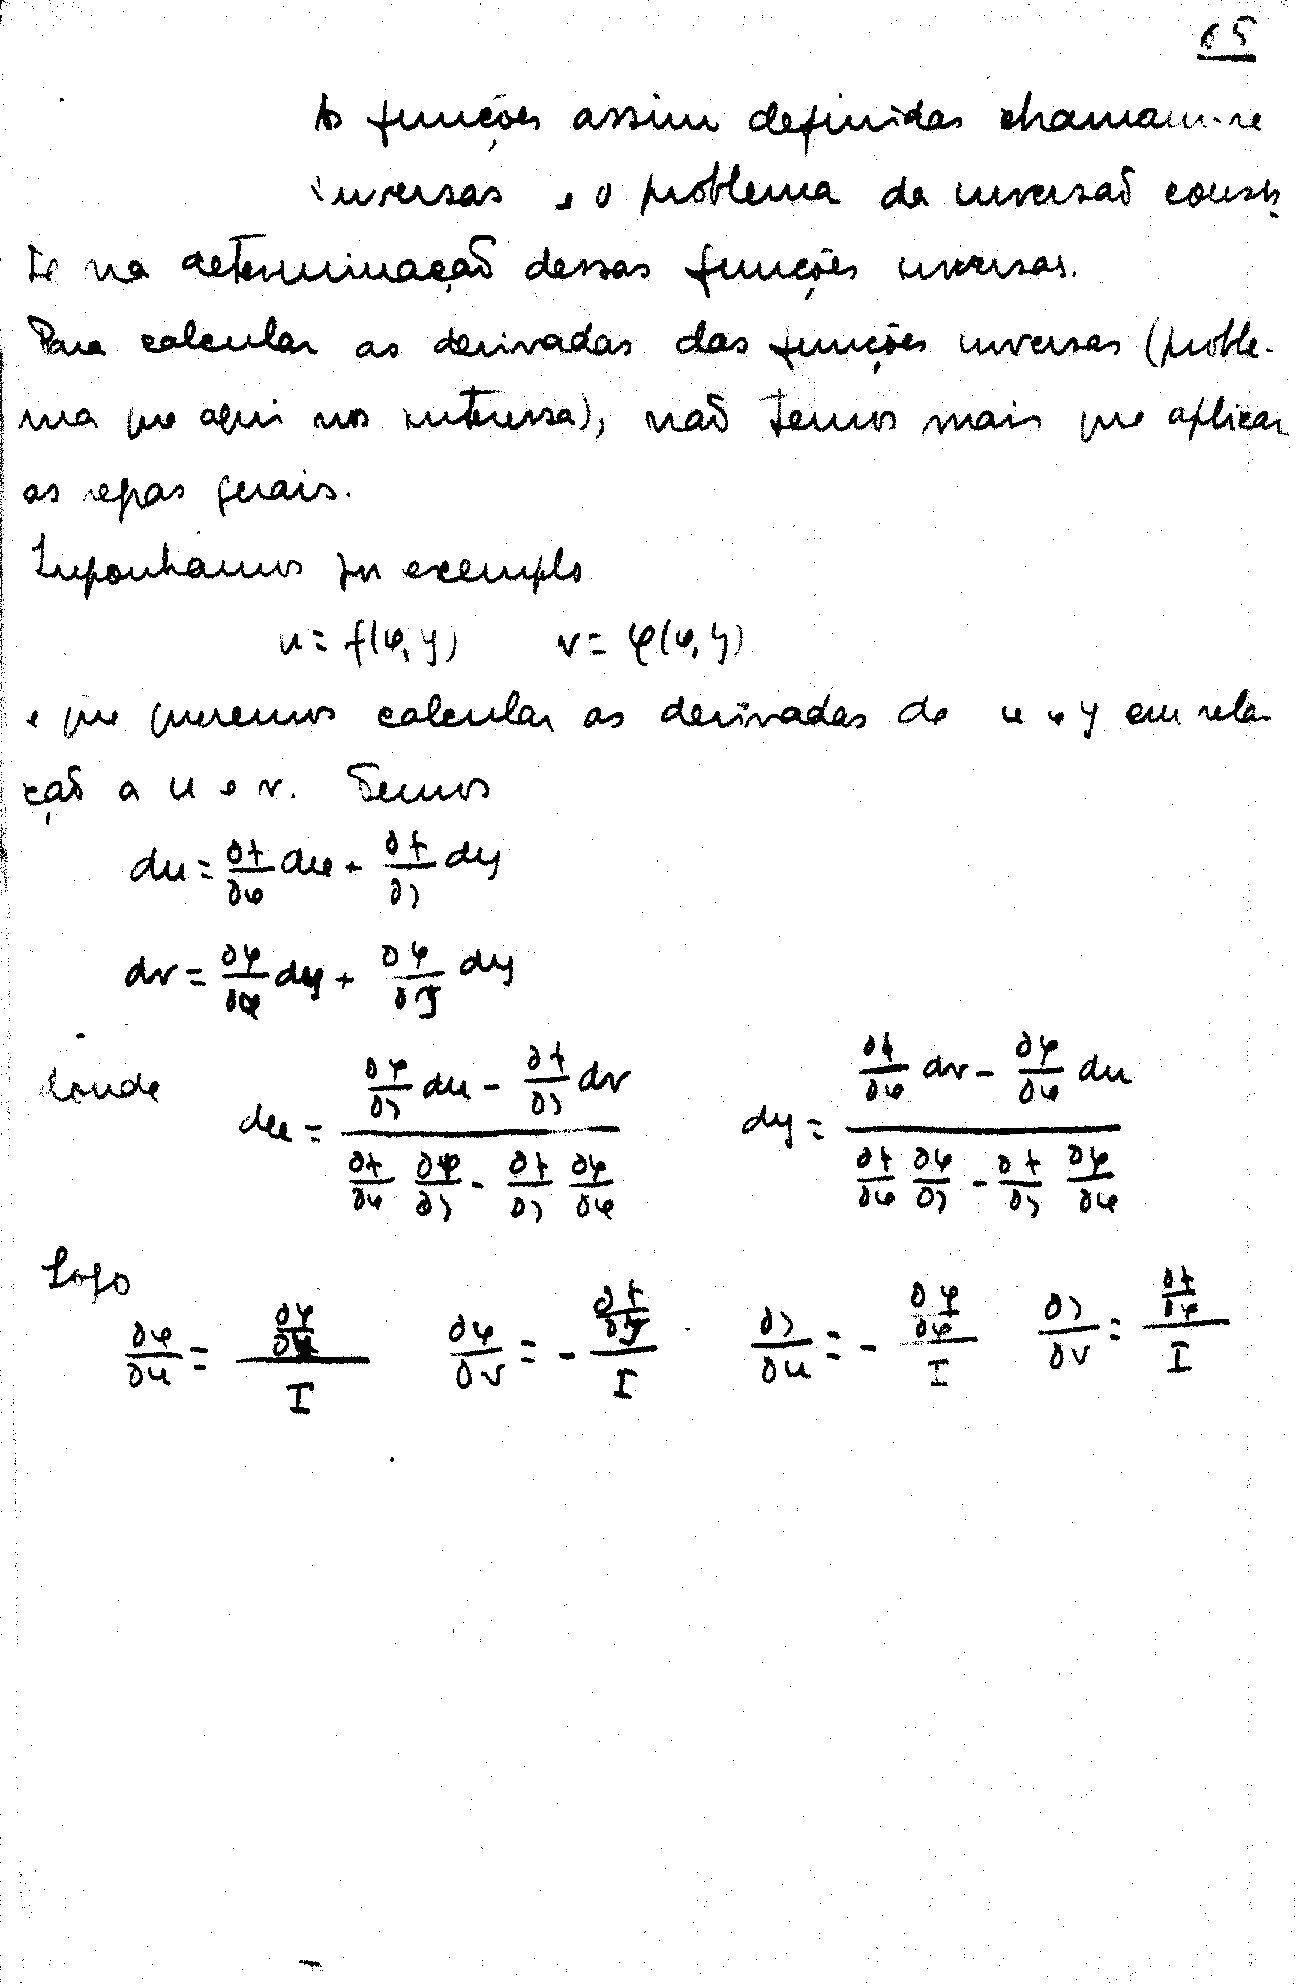 65
As funções assim definidas chamam-se
inversas e o problema da inversão consis
te na determinação dessas funções inversas.
Para calcular as derivadas das funções inversas (proble-
ma que aqui nos interessa), não temos mais que aplicar
as regras gerais.
Suponhamos por exemplo
u = f(x, y) v = φ(x, y)
e que queremos calcular as derivadas de x e y em rela-
ção a u e v. Temos
du = ∂f/∂x dx + ∂f/∂y dy
dv = ∂φ/∂x dx + ∂φ/∂y dy
donde dx = (∂φ/∂y du - ∂f/∂y dv) / (∂f/∂x ∂φ/∂y - ∂f/∂y ∂φ/∂x) dy = (∂f/∂x dv - ∂φ/∂x du) / (∂f/∂x ∂φ/∂y - ∂f/∂y ∂φ/∂x)
Logo
∂x/∂u = (∂φ/∂y)/I ∂x/∂v = - (∂f/∂y)/I ∂y/∂u = - (∂φ/∂x)/I ∂y/∂v = (∂f/∂x)/I